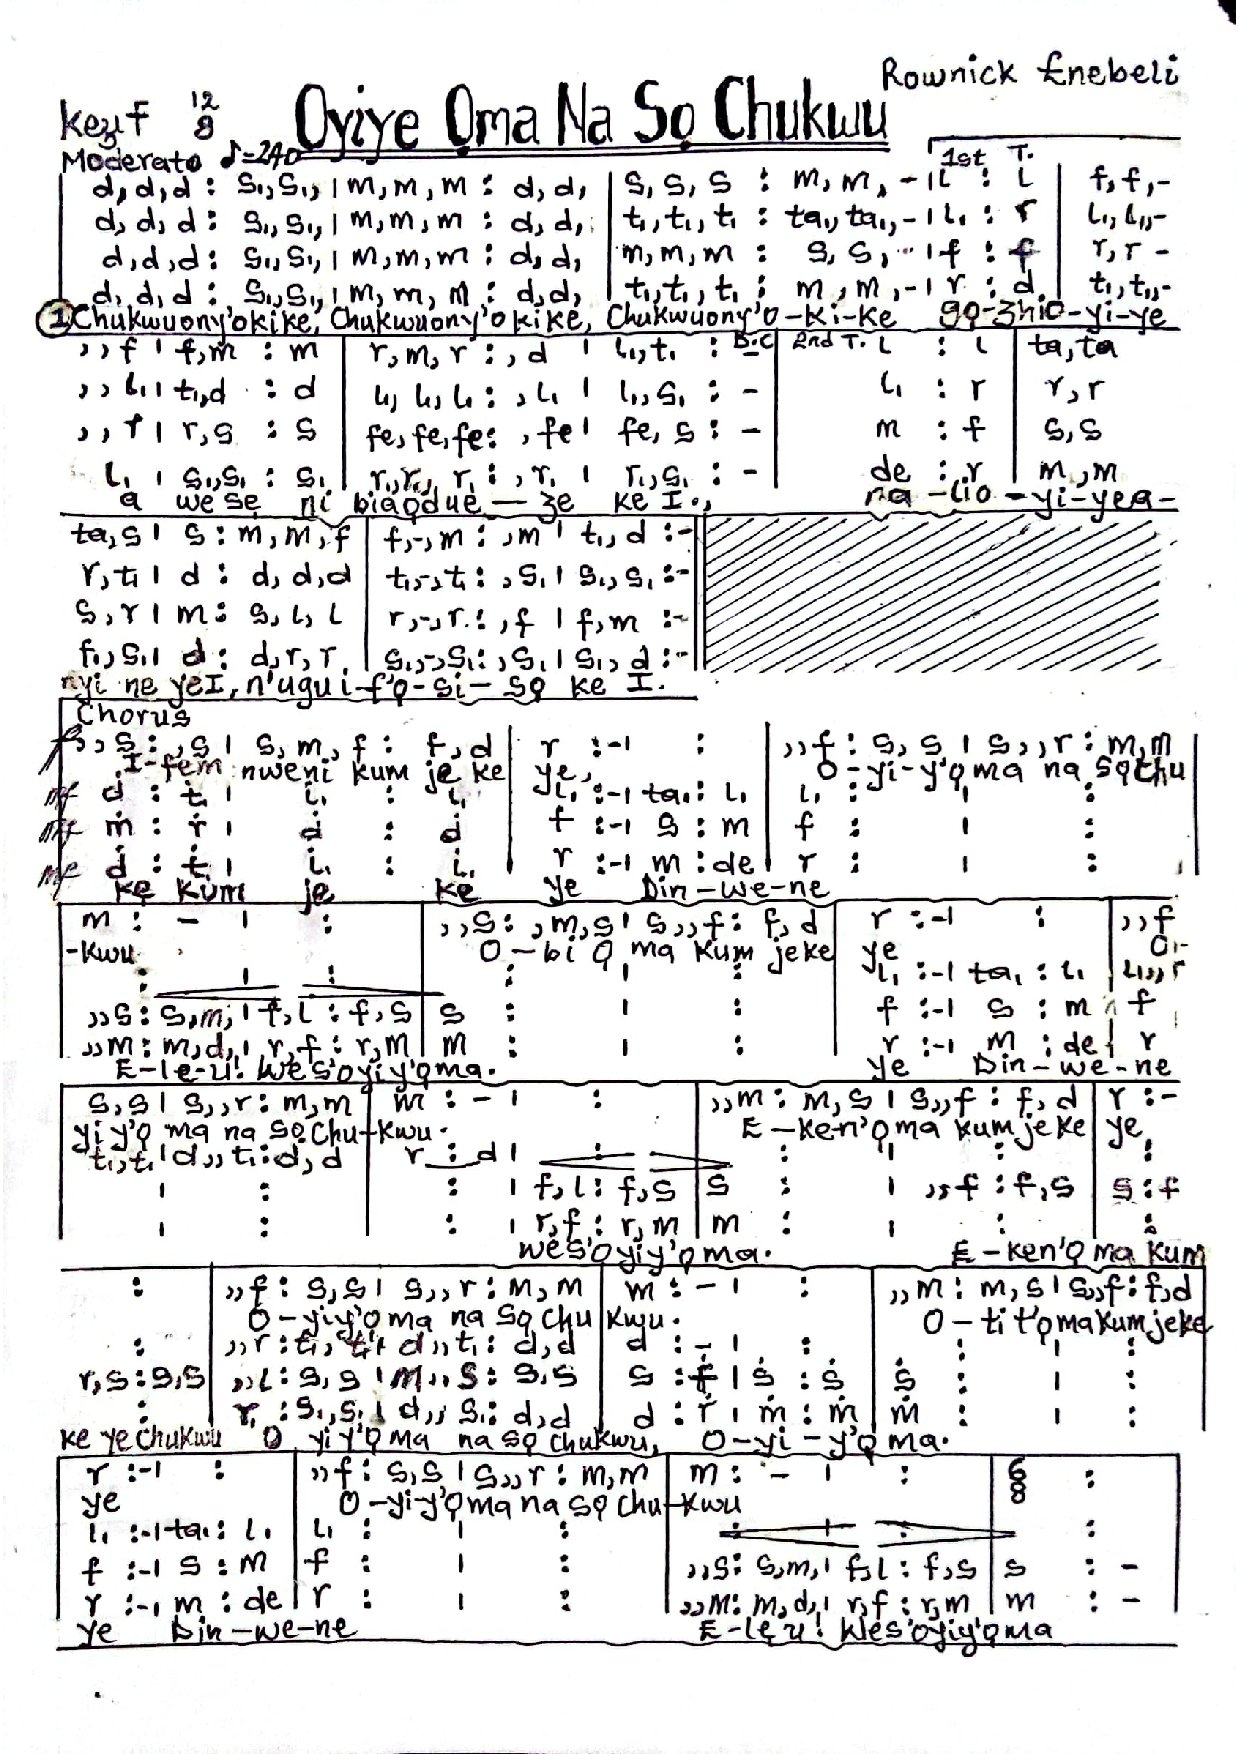 Rownick Enebeli
Key F 12/8 Oyiye Ọma Na Sọ Chukwu
Moderato ♪=240
1st T.
d,d,d : s₁,s₁, | m,m,m : d,d, | s,s,s : m,m,-| l : l | f,f,-
d,d,d : s₁,s₁, | m,m,m : d,d, | t₁,t₁,t₁ : ta₁,ta₁,-| l₁ : r | l₁,l₁,-
d,d,d : s₁,s₁, | m,m,m : d,d, | m,m,m : s,s,-| f : f | r,r -
d,d,d : s₁,s₁, | m,m,m : d,d, | t₁,t₁,t₁ : m,m,-| r : d | t₁,t₁,-
① Chukwuony'okike, Chukwuony'okike, Chukwuony'o-ki-ke go-zhiO-yi-ye
,,f | f,m : m | r,m,r : ,d | l₁,t₁ : D.C | 2nd T. l : l | ta,ta
,,l₁ | t₁,d : d | l₁,l₁,l₁ : ,l₁ | l₁,s₁ : - | l₁ : r | r,r
,,r | r,s : s | fe,fe,fe : ,fe | fe,s : - | m : f | s,s
l₁ | s₁,s₁ : s₁ | r₁,r₁,r₁ : ,r₁ | r₁,s₁ : - | de : r | m,m
a wese ni biaọdue — ze ke I., na-liO-yi-yea-
ta,s | s : m,m,f | f,-,m : ,m | t₁,d :-
r,t₁ | d : d,d,d | t₁,-,t₁ : ,s₁ | s₁,s₁ :-
s,r | m : s,l,l | r,-,r : ,f | f,m :-
f₁,s₁ | d : d,r,r | s₁,-,s₁ : ,s₁ | s₁,d :-
nyi ne yeI, n'ugu i-f'ọ-si-sọ ke I.
Chorus
f ,,s : ,s | s,m,f : f,d | r :-| : | ,,f : s,s | s,,r : m,m
I-fem nweni kum je ke ye, O-yi-y'ọma na sọchu
mf d : t₁ | l₁ : l₁ | l₁ :-| ta₁ : l₁ | l₁ : | :
mf m : r | d : d | f :-| s : m | f : | :
mf d : t₁ | l₁ : l₁ | r :-| m : de | r : | :
kẹ kum je ke ye Din-we-ne
m : - | : | ,,s : ,m,s | s,,f : f,d | r :-| : | ,,f
-kwu O-bi ọ ma kum jeke ye O-
: | : | : | : | l₁ :-| ta₁ : l₁ | l₁,,r
,,s : s,m, | f,l : f,s | s : | : | f :-| s : m | f
,,m : m,d, | r,f : r,m | m : | : | r :-| m : de | r
E-le-u! wes'oyiy'ọma. ye Din-we-ne
s,s | s,,r : m,m | m : - | : | ,,m : m,s | s,,f : f,d | r :-
yi y'ọ ma na sọchu-kwu. E-ken'ọma kumjeke ye,
t₁,t₁ | d,,t₁ : d,d | r : d | : | : | : | :
| : | : | f,l : f,s | s : | ,,f : f,s | s : f
| : | : | r,f : r,m | m : | : | :
wes'oyiy'ọma. E-ken'ọ ma kum
: | ,,f : s,s | s,,r : m,m | m : - | : | ,,m : m,s | s,,f : f,d
O-yiy'ọma na sọ chu kwu. O-ti t'ọmakumjeke
: | ,,r : t₁,t₁ | d,,t₁ : d,d | d : - | : | : | :
r,s : s,s | ,,l : s,s | m,,s : s,s | s : f | s : s | s : | :
: | r₁ : s₁,s₁ | d,,s₁ : d,d | d : r | m : m | m : | :
ke ye chukwu O yi y'ọma na sọ chukwu, O-yi-y'ọma.
r :-| : | ,,f : s,s | s,,r : m,m | m : - | : | 6/8 :
ye O-yi-y'ọma na sọ chu-kwu
l₁ :-| ta₁ : l₁ | l₁ : | : | : | : | :
f :-| s : m | f : | : | ,,s : s,m, | f,l : f,s | s : -
r :-| m : de | r : | : | ,,m : m,d, | r,f : r,m | m : -
ye Din-we-ne E-lẹu! Wes'oyiy'ọma